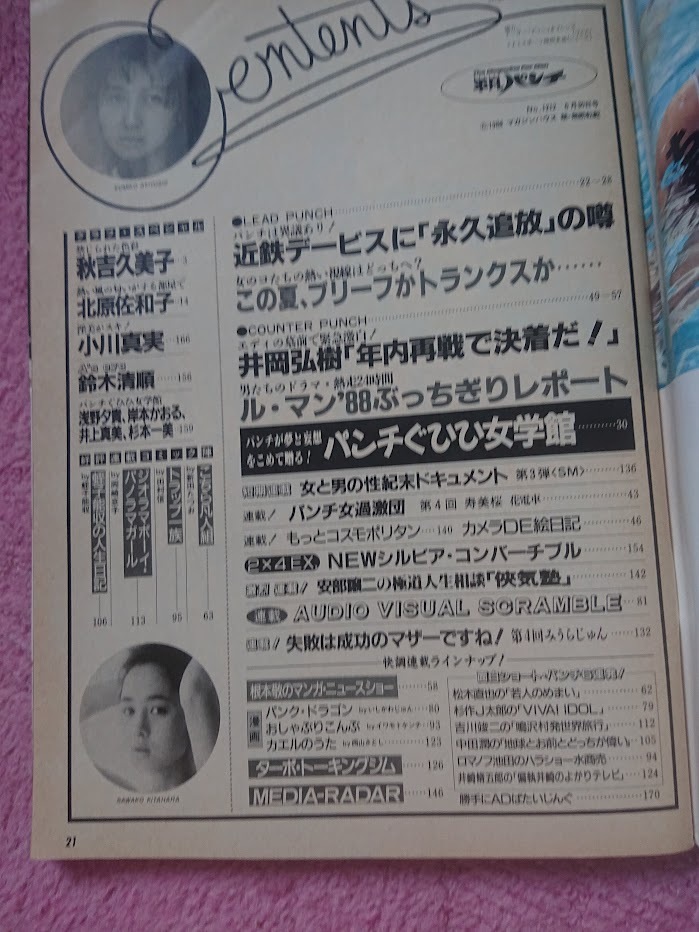 Contents
平凡パンチ
KUMIKO AKIYOSHI
秋吉久美子
3
熱い風の匂いがする部屋で
北原佐和子
14
小川真実
166
鈴木清順
156
パンチぐひひ女学館
浅野夕貴、岸本かおる、
井上真美、杉本一美
159
トラップ一族
ジオラマボーイ
パノラマガール
63
95
113
106
SAWAKO KITAHARA
●LEAD PUNCH
22—28
パンチは異議あり!
近鉄デービスに「永久追放」の噂
女のコたちの熱い視線はどっちへ?
この夏、ブリーフかトランクスか……
●COUNTER PUNCH
49—57
エディの墓前で緊急激白!
井岡弘樹「年内再戦で決着だ!」
男たちのドラマ・熱走24時間
ル・マン'88ぶっちぎりレポート
パンチが夢と妄想
をこめて贈る!
パンチぐひひ女学館
30
短期連載 女と男の性紀末ドキュメント 第3弾〈SM〉 136
連載! パンチ女過激団 第4回 寿美桜 花電車 43
連載! もっとコスモポリタン 140 カメラDE絵日記 46
2×4EX. NEWシルビア・コンバーチブル 154
安部譲二の極道人生相談「侠気塾」 142
連載 AUDIO VISUAL SCRAMBLE 81
連載! 失敗は成功のマザーですね! 第4回みうらじゅん 132
快調連載ラインナップ!
根本敬のマンガ・ニュースショー 58
漫画
パンク・ドラゴン byいしかわじゅん 80
おしゃぶりこんぶ byイワモトケンチ 93
カエルのうた 123
ターボ・トーキングジム 126
MEDIA-RADAR 146
松本直也の「若人のめまい」 62
杉作J太郎の「VIVA! IDOL」 79
吉川竣二の「鳴沢村発世界旅行」 112
中田潤の「地球とお前とどっちが偉い」 105
ロマノフ池田のハラショー水商売 94
井崎脩五郎の「偏執井崎のよかりテレビ」 124
勝手にADばたいじんぐ 170
21